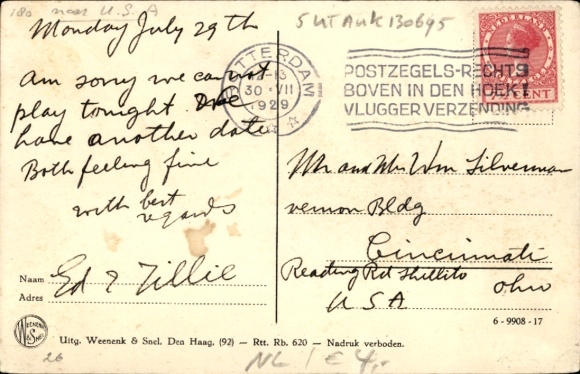 180 naar U.S.A
5 UTAUK130695
Monday July 29th
Am sorry we cannot
play tonight
have another date
Both feeling fine
with best
regards
Ed & Tillie
Naam
Adres
ROTTERDAM
30 VII
1929
POSTZEGELS-RECHTS
BOVEN IN DEN HOEK!
VLUGGER VERZENDING!
NEDERLAND
CENT
Mr and Mrs Wm Silverman
Vernon Bldg
Cincinnati
Reading Rd Shillito
Ohio
USA
6 - 9908 - 17
WEENENK & SNEL
Uitg. Weenenk & Snel. Den Haag. (92) — Rtt. Rb. 620 — Nadruk verboden.
26
NL / € 4,-